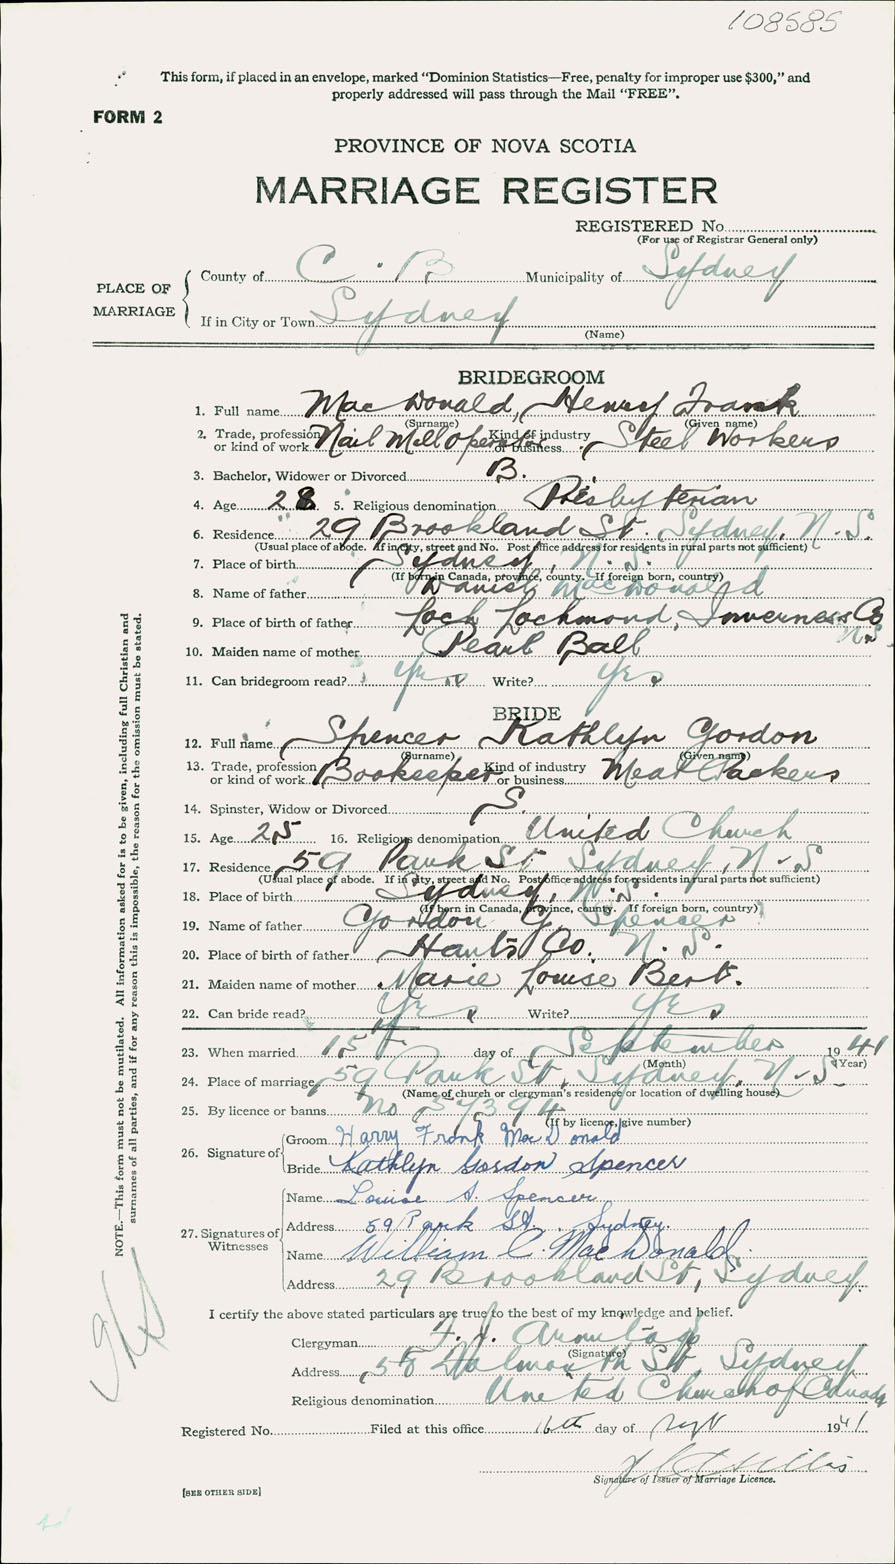 108585
This form, if placed in an envelope, marked "Dominion Statistics—Free, penalty for improper use $300," and
properly addressed will pass through the Mail "FREE".
FORM 2
PROVINCE OF NOVA SCOTIA
MARRIAGE REGISTER
REGISTERED No.
(For use of Registrar General only)
PLACE OF MARRIAGE
County of C. B. Municipality of Sydney
If in City or Town Sydney
(Name)
BRIDEGROOM
1. Full name MacDonald, Henry Frank
(Surname) (Given name)
2. Trade, profession or kind of work Nail Mill Operator Kind of industry or business Steel Workers
3. Bachelor, Widower or Divorced B.
4. Age 28 5. Religious denomination Presbyterian
6. Residence 29 Brookland St. Sydney, N.S.
(Usual place of abode. If in city, street and No. Post office address for residents in rural parts not sufficient)
7. Place of birth Sydney, N.S.
(If born in Canada, province, county. If foreign born, country)
8. Name of father MacDonald
9. Place of birth of father Loch Lochmond, Inverness Co
N.S
10. Maiden name of mother Pearl Ball
11. Can bridegroom read? Yes Write? Yes
BRIDE
12. Full name Spencer Kathlyn Gordon
(Surname) (Given name)
13. Trade, profession or kind of work Bookeeper Kind of industry or business Meat Packers
14. Spinster, Widow or Divorced S.
15. Age 25 16. Religious denomination United Church
17. Residence 59 Park St Sydney, N-S
(Usual place of abode. If in city, street and No. Post office address for residents in rural parts not sufficient)
18. Place of birth Sydney, N.S.
(If born in Canada, province, county. If foreign born, country)
19. Name of father Gordon G. Spencer
20. Place of birth of father Hants Co. N.S.
21. Maiden name of mother Marie Louise Bert.
22. Can bride read? Yes Write? Yes
23. When married 15th day of September 1941
(Month) (Year)
24. Place of marriage 59 Park St, Sydney, N-S
(Name of church or clergyman's residence or location of dwelling house)
25. By licence or banns No 57394
(If by licence, give number)
26. Signature of
Groom Harry Frank MacDonald
Bride Kathlyn Gordon Spencer
27. Signatures of Witnesses
Name Louise S. Spencer
Address 59 Park St. Sydney.
Name William C. MacDonald.
Address 29 Brookland St, Sydney.
I certify the above stated particulars are true to the best of my knowledge and belief.
Clergyman F. J. Armitage
(Signature)
Address 58 St, Sydney
Religious denomination United Church of Canada
Registered No. Filed at this office 16th day of Sept 1941
Willis
Signature of Issuer of Marriage Licence.
[SEE OTHER SIDE]
NOTE.—This form must not be mutilated. All information asked for is to be given, including full Christian and
surnames of all parties, and if for any reason this is impossible, the reason for the omission must be stated.